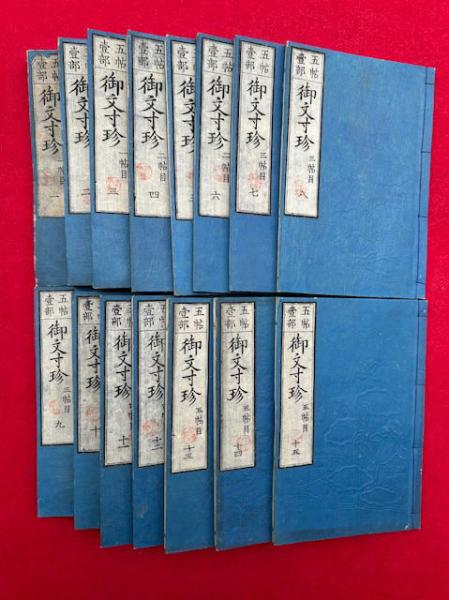 五帖
壹部
御文寸珍
帖目
一
壹部
御文寸珍
二
五帖
壹部
御文寸珍
一帖目
三
五帖
壹部
御文寸珍
二帖目
四
壹部
御文寸珍
五帖
壹部
御文寸珍
二帖目
六
五帖
壹部
御文寸珍
三帖目
七
五帖
壹部
御文寸珍
三帖目
八
五帖
壹部
御文寸珍
三帖目
九
壹部
御文寸珍
十
壹部
御文寸珍
十一
五帖
壹部
御文寸珍
十二
五帖
壹部
御文寸珍
五帖目
十三
五帖
壹部
御文寸珍
五帖目
十四
五帖
壹部
御文寸珍
五帖目
十五